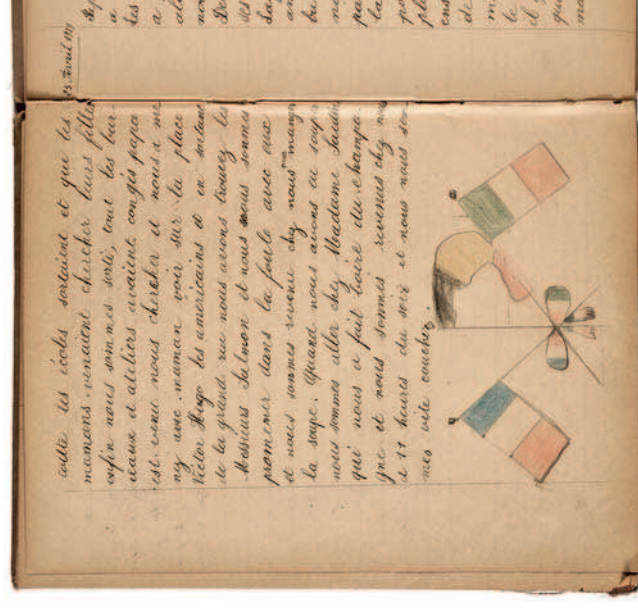 les écoles sortaient et que les
mamans venaient chercher leurs filles
enfin nous sommes sorti, tout les bur-
eaux et ateliers avaient congés papa
est venu nous chercher et nous a me
ny avec maman voir sur la place
Victor Hugo les americains et en sortant
de la grand rue nous avons trouvez les
Messieurs Salmon et nous nous sommes
promener dans la foule avec eux
et nous sommes revenu chez nous
la soupe. Quand nous avons eu souper
nous sommes aller chez Madame
qui nous a fait boire du champa-
gne et nous sommes revenus chez nous
à 11 heures du soir et nous nous som-
mes vite couchez.
Avril